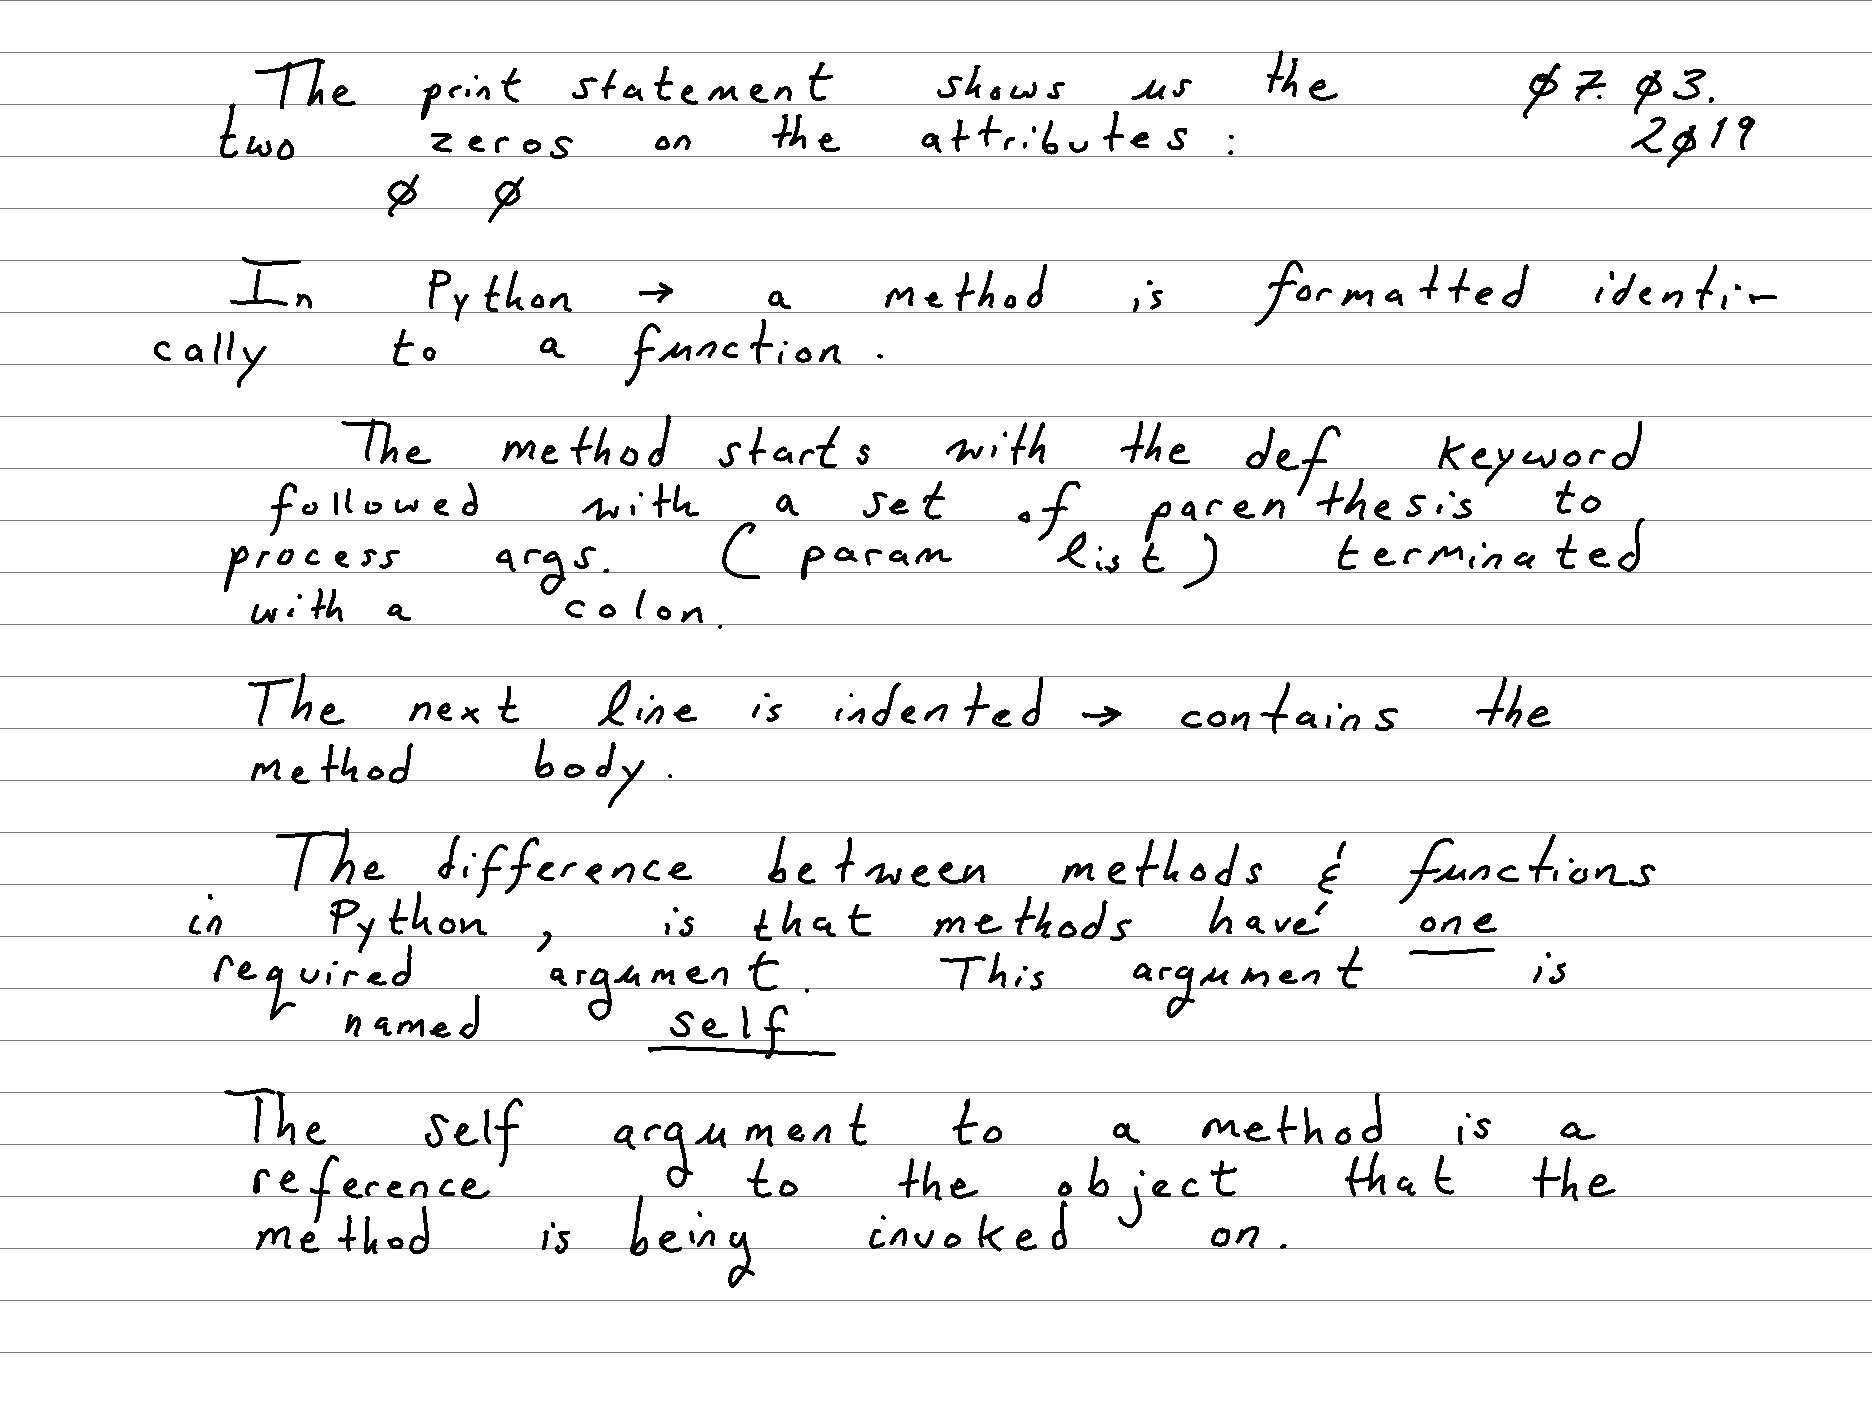 The print statement shows us the 07.03.
two zeros on the attributes : 2019
0 0
In Python → a method is formatted identi-
cally to a function.
The method starts with the def keyword
followed with a set of parenthesis to
process args. (param list) terminated
with a colon.
The next line is indented → contains the
method body.
The difference between methods & functions
in Python, is that methods have one
required argument. This argument is
named self
The self argument to a method is a
reference to the object that the
method is being invoked on.